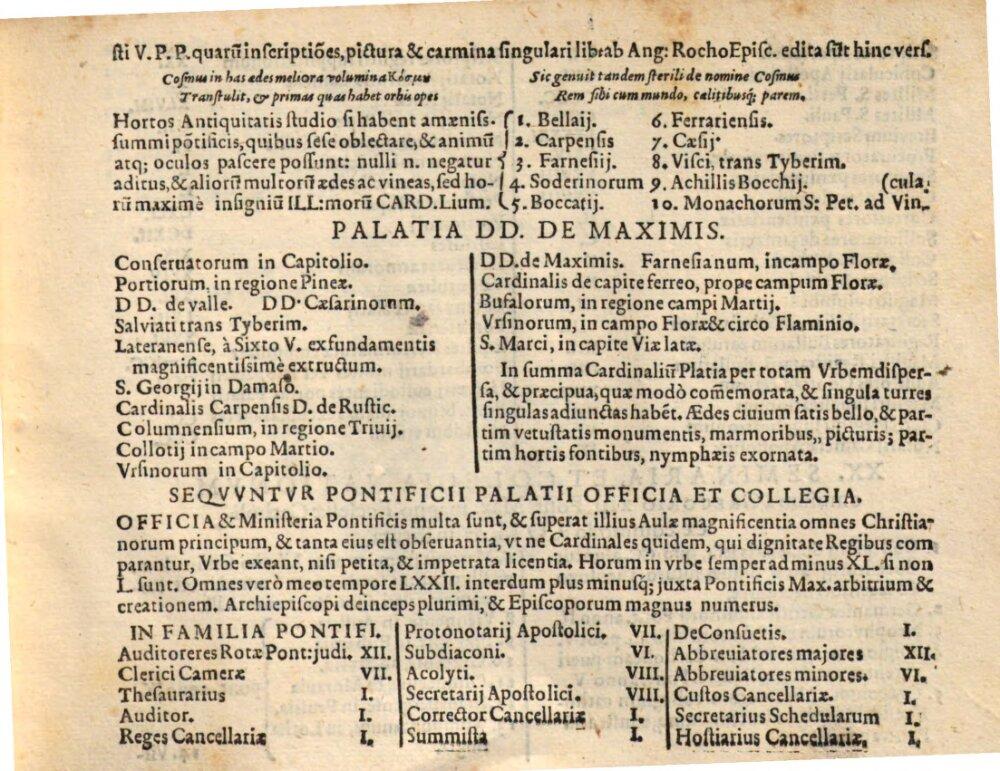 sti V. P. P. quarū inscriptiōes, pictura & carmina singulari lib: ab Ang: Rocho Episc. edita sūt hinc vers.
Cosmus in has ædes meliora volumina Κόσμυ
Transtulit, & primas quas habet orbis opes
Sic genuit tandem sterili de nomine Cosmus
Rem sibi cum mundo, cælitibusq; parem.
Hortos Antiquitatis studio si habent amæniss.
summi pōtificis, quibus sese oblectare, & animū
atq; oculos pascere possunt: nulli n. negatur
aditus, & aliorū multorū ædes ac vineas, sed ho-
rū maximè insigniū ILL:morū CARD. Lium.
1. Bellaij.
2. Carpensis
3. Farnesiij.
4. Soderinorum
5. Boccatij.
6. Ferrariensis.
7. Cæsij.
8. Visci, trans Tyberim.
9. Achillis Bocchij. (cula.
10. Monachorum S: Pet. ad Vin,
PALATIA DD. DE MAXIMIS.
Conseruatorum in Capitolio.
Portiorum, in regione Pineæ.
D D. de valle. D D. Cæsarinorum.
Salviati trans Tyberim.
Lateranense, à Sixto V. ex fundamentis
magnificentissimè extructum.
S. Georgij in Damaso.
Cardinalis Carpensis D. de Rustic.
Columnensium, in regione Triuij.
Collotij in campo Martio.
Vrsinorum in Capitolio.
D D. de Maximis. Farnesianum, in campo Floræ.
Cardinalis de capite ferreo, prope campum Floræ.
Bufalorum, in regione campi Martij.
Vrsinorum, in campo Floræ & circo Flaminio.
S. Marci, in capite Viæ latæ.
In summa Cardinaliū Platia per totam Vrbem disper-
sa, & præcipua, quæ modò com̄emorata, & singula turres
singulas adiunctas habēt. Ædes ciuium satis bello, & par-
tim vetustatis monumentis, marmoribus,, picturis; par-
tim hortis fontibus, nymphæis exornata.
SEQVVNTVR PONTIFICII PALATII OFFICIA ET COLLEGIA.
OFFICIA & Ministeria Pontificis multa sunt, & superat illius Aulæ magnificentia omnes Christia-
norum principum, & tanta eius est obseruantia, vt ne Cardinales quidem, qui dignitate Regibus com
parantur, Vrbe exeant, nisi petita, & impetrata licentia. Horum in vrbe semper ad minus XL. si non
L sunt. Omnes verò meo tempore LXXII. interdum plus minusq; juxta Pontificis Max. arbitrium &
creationem. Archiepiscopi deinceps plurimi, & Episcoporum magnus numerus.
IN FAMILIA PONTIFI.
Auditoreres Rotæ Pont: judi. XII.
Clerici Cameræ VII.
Thesaurarius I.
Auditor. I.
Reges Cancellariæ I.
Protonotarij Apostolici. VII.
Subdiaconi. VI.
Acolyti. VIII.
Secretarij Apostolici. VIII.
Corrector Cancellariæ I.
Summista I.
De Consuetis. I.
Abbreuiatores majores XII.
Abbreuiatores minores. VI.
Custos Cancellariæ. I.
Secretarius Schedularum I.
Hostiarius Cancellariæ. I.